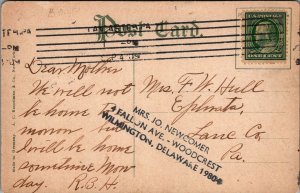 Post Card.
Dear Mother
We will not
be home To
morrow but
will be home
sometime Mon
day. R.B.H.
Mrs. F. W. Hull
Ephrata
Lanc Co.
Pa.
MRS. JO NEWCOMER
4 FALLON AVE. - WOODCREST
WILMINGTON, DELAWARE 19804